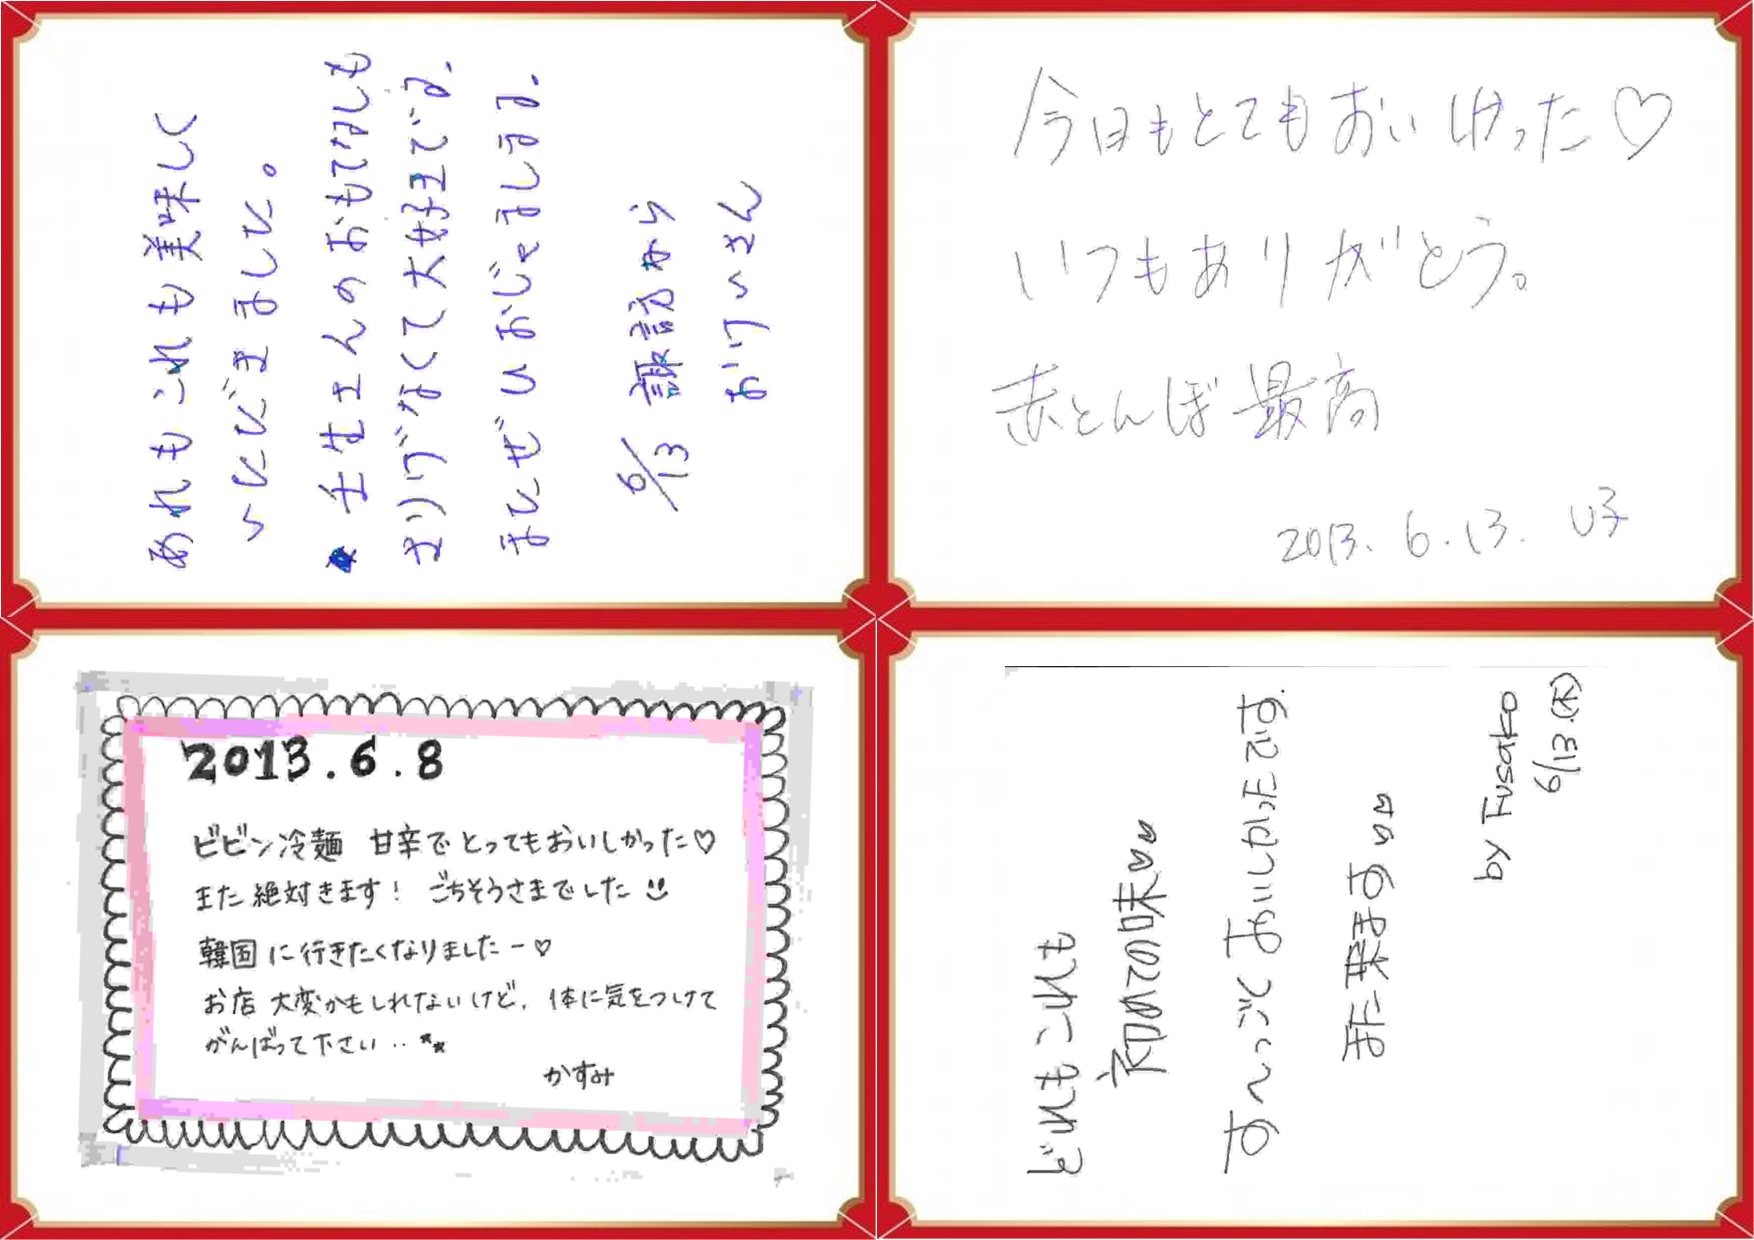 あれもこれも美味しく
いただきました。
★壬生さんのおもてなしも
さりげなくて大好きです。
またぜひおじゃまします。
6/13 諏訪から
おけいさん
今日もとてもおいしかった♡
いつもありがとう。
赤とんぼ最高
2013.6.13. い子
2013.6.8
ビビン冷麺 甘辛でとってもおいしかった♡
また絶対きます! ごちそうさまでした
韓国に行きたくなりましたー♡
お店大変かもしれないけど、体に気をつけて
がんばって下さい‥**
かすみ
どれもこれも
初めての味♡♡
すへっごくおいしかったです.
また来ます♡♡
by Fusako
6/13.(木)